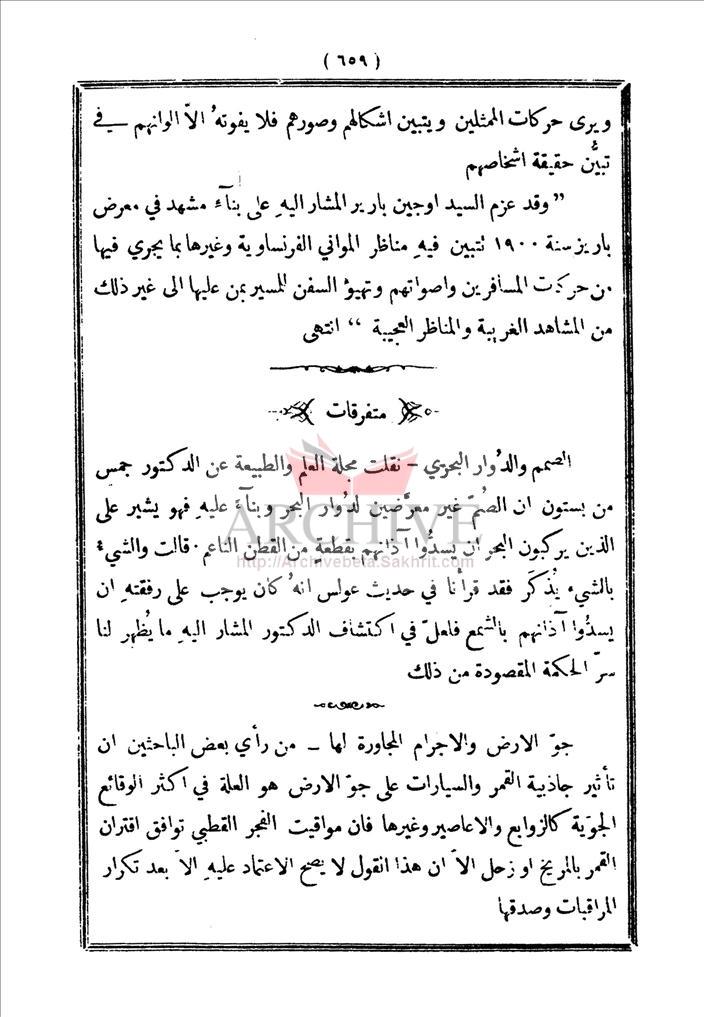 ( ٦٥٩ )
ويرى حركات الممثلين ويتبين اشكالهم وصورهم فلا يفوتهُ الاّ الوانهم في
تبيُّن حقيقة اشخاصهم
” وقد عزم السيد اوجين بارير المشار اليهِ على بنآء مشهد في معرض
باريز سنة ١٩٠٠ تتبين فيهِ مناظر المواني الفرنساوية وغيرها بما يجري فيها
من حركات المسافرين واصواتهم وتهيؤ السفن للمسير بمن عليها الى غير ذلك
من المشاهد الغريبة والمناظر العجيبة “ انتهى
متفرقات
الصمم والدُوار البحري – نقلت مجلة العلم والطبيعة عن الدكتور جمس
من بستون ان الصُمّ غير معرَّضين لدُوار البحر وبنآءً عليهِ فهو يشير على
الذين يركبون البحر ان يسدُّوا آذانهم بقطعةٍ من القطن الناعم . قالت والشيء
بالشيء يُذكَر فقد قرأنا في حديث عولس انهُ كان يوجب على رفقتهِ ان
يسدُّوا آذانهم بالشمع فلعلّ في اكتشاف الدكتور المشار اليهِ ما يُظهر لنا
سرّ الحكمة المقصودة من ذلك
جوّ الارض والاجرام المجاورة لها – من رأي بعض الباحثين ان
تأثير جاذبية القمر والسيارات على جوّ الارض هو العلة في اكثر الوقائع
الجوّية كالزوابع والاعاصير وغيرها فان مواقيت الفجر القطبي توافق اقتران
القمر بالمريخ او زحل الاّ ان هذا القول لا يصح الاعتماد عليهِ الاّ بعد تكرار
المراقبات وصدقها
ARCHIVE
http://Archivebeta.Sakhrit.com